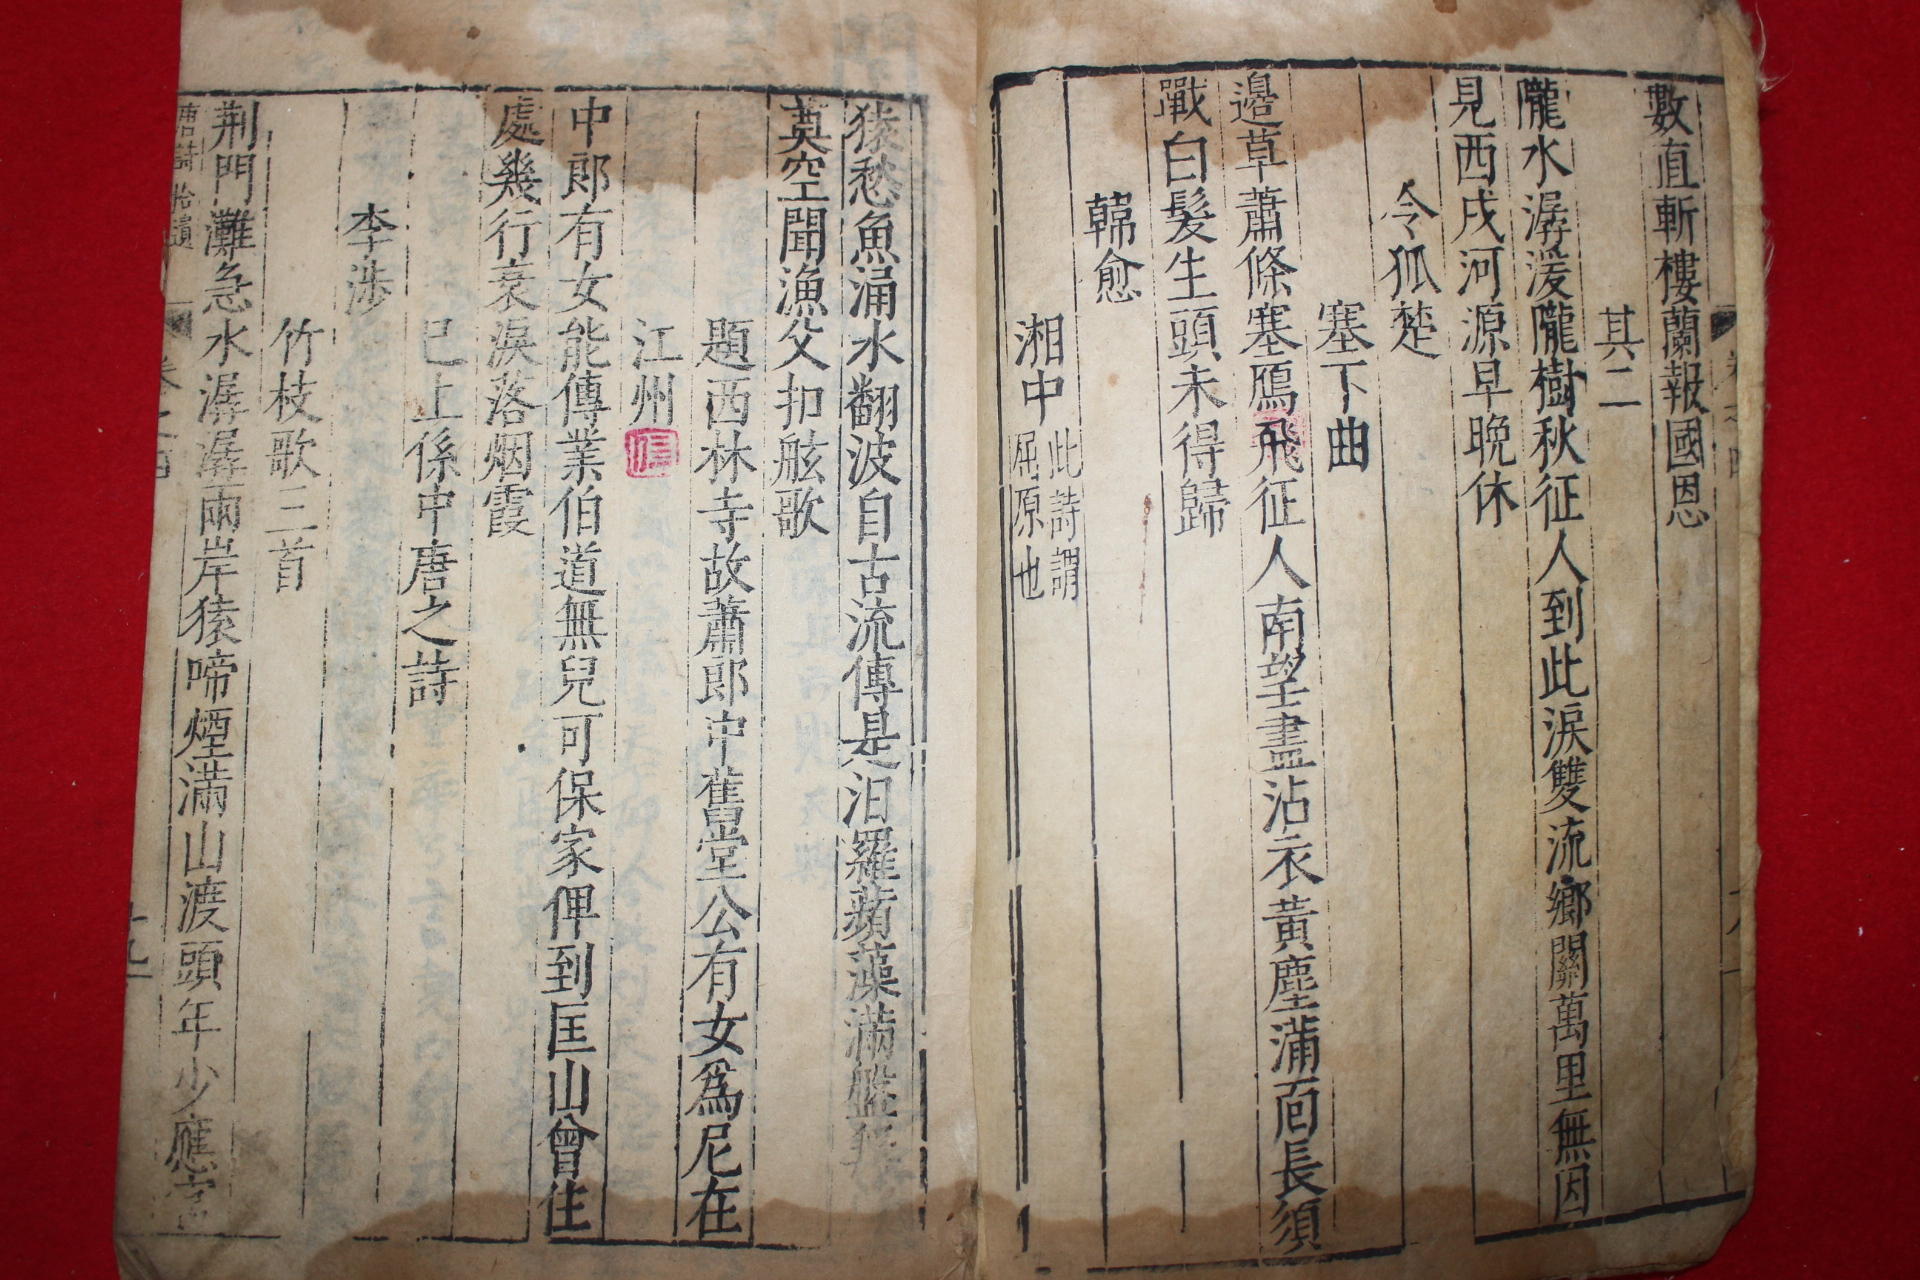 數直斬樓蘭報國恩
其二
隴水潺湲隴樹秋征人到此淚雙流鄉關萬里無因
見西戍河源早晩休
令狐楚
塞下曲
邊草蕭條塞鴈飛征人南望盡沾衣黃塵滿面長須
戰白髮生頭未得歸
韓愈
湘中
此詩謂
屈原也
猿愁魚涌水翻波自古流傳是汨羅蘋藻滿盤無
奠空聞漁父扣舷歌
題西林寺故蕭郎中舊堂公有女爲尼在
江州
中郎有女能傳業伯道無兒可保家俾到匡山曾住
處幾行衰淚落烟霞
已上係中唐之詩
李涉
竹枝歌三首
荆門灘急水潺潺兩岸猿啼煙滿山渡頭年少應官
唐詩拾遺
卷之四
十九